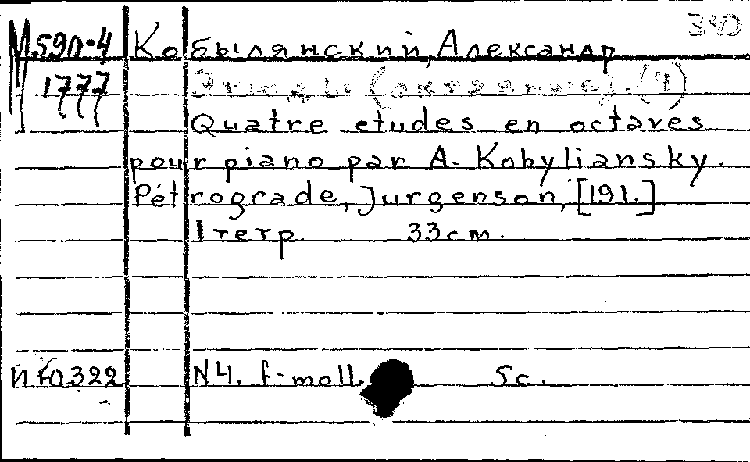 340
М.590-4 Кобылянский, Александр
1777 Этюды (октавные). (4)
Quatre etudes en octaves
pour piano par A. Kobyliansky.
Pétrograde, Jurgenson, [191.]
1 тетр. 33 см.
N4. f-moll. 5 с.